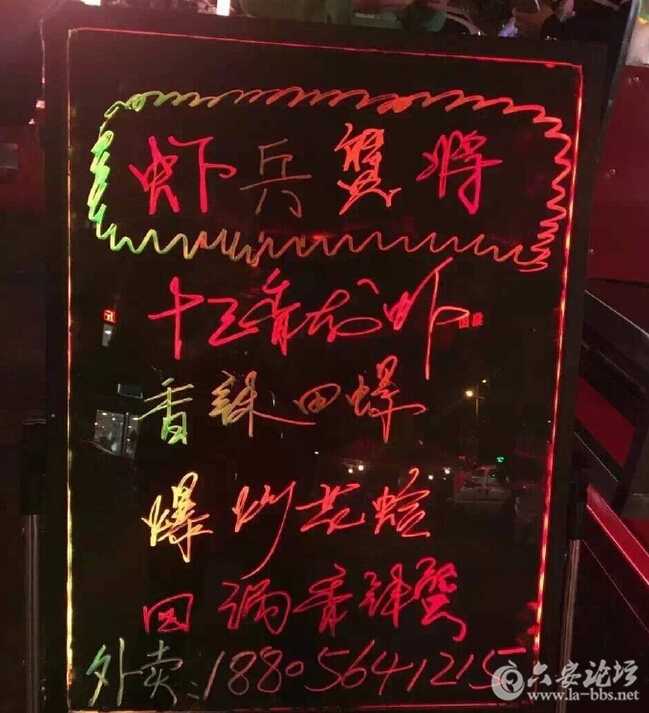 虾兵蟹将
十三香龙虾
香辣田螺
爆炒花蛤
回锅香辣蟹
外卖:18805641215
六安论坛
www.la-bbs.net